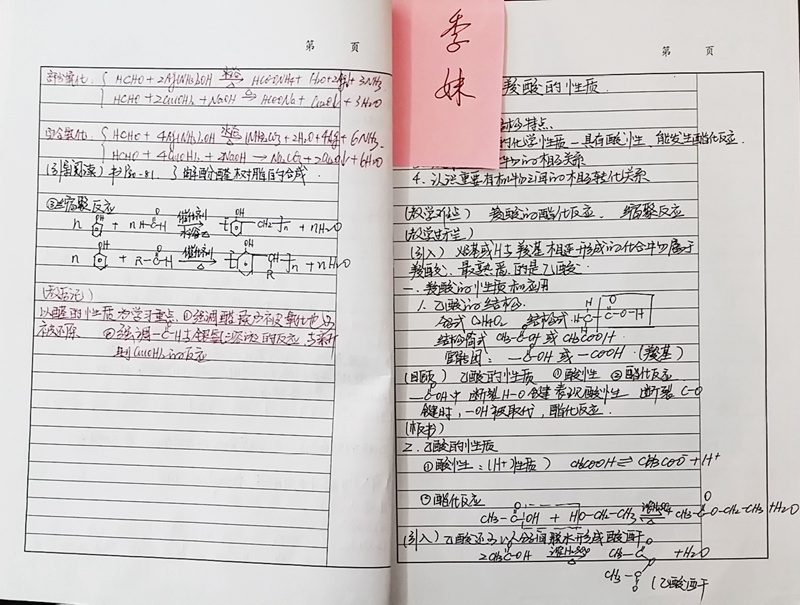 第 页
部分氧化 { HCHO + 2Ag(NH₃)₂OH →水浴△ HCOONH₄ + H₂O + 2Ag↓ + 3NH₃
HCHO + 2Cu(OH)₂ + NaOH →△ HCOONa + Cu₂O↓ + 3H₂O
完全氧化 { HCHO + 4Ag(NH₃)₂OH →水浴△ (NH₄)₂CO₃ + 2H₂O + 4Ag↓ + 6NH₃
HCHO + 4Cu(OH)₂ + 2NaOH → Na₂CO₃ + 2Cu₂O↓ + 6H₂O
(引导阅读) 书P80-81,
缩聚反应
n OH + n H-C-H O 催化剂 水浴△ [ OH CH₂ ]n + nH₂O
n OH + n R-C-H O 催化剂 △ [ OH CH R ]n + nH₂O
(教后记)
以醛的性质为学习重点, ①强调醛基
②强调 -C-H 与银氨溶液的反应, 与新制
Cu(OH)₂的反应
季
妹
第 页
羧酸的性质
特点
的化学性质 — 具有酸性, 能发生酯化反应.
的相互关系
4. 认识重要有机物之间的相互转化关系
(教学难点) 羧酸的酯化反应, 缩聚反应
(教学过程)
(引入) 烃基或H与羧基相连形成的化合物属于
羧酸, 最熟悉的是乙酸.
一. 羧酸的性质和应用
1. 乙酸的结构
分式 C₂H₄O₂ 结构式 H-C-C-O-H H H O
结构简式 CH₃-C-OH 或 CH₃COOH O
官能团: -C-OH 或 -COOH (羧基) O
乙酸的性质 ①酸性 ②酯化反应
-C-OH中 断裂H-O键表现酸性 断裂 C-O
键时, -OH被取代, 酯化反应.
(板书)
2. 乙酸的性质
①酸性: (H⁺性质) CH₃COOH ⇌ CH₃COO⁻ + H⁺
②酯化反应
CH₃-C-OH + HO-CH₂-CH₃ ⇌浓H₂SO₄△ CH₃-C-O-CH₂-CH₃ + H₂O
(引入) 乙酸还可以分间脱水形成酸酐
2CH₃-C-OH 浓H₂SO₄△ CH₃-C O + H₂O
CH₃-C O (乙酸酐